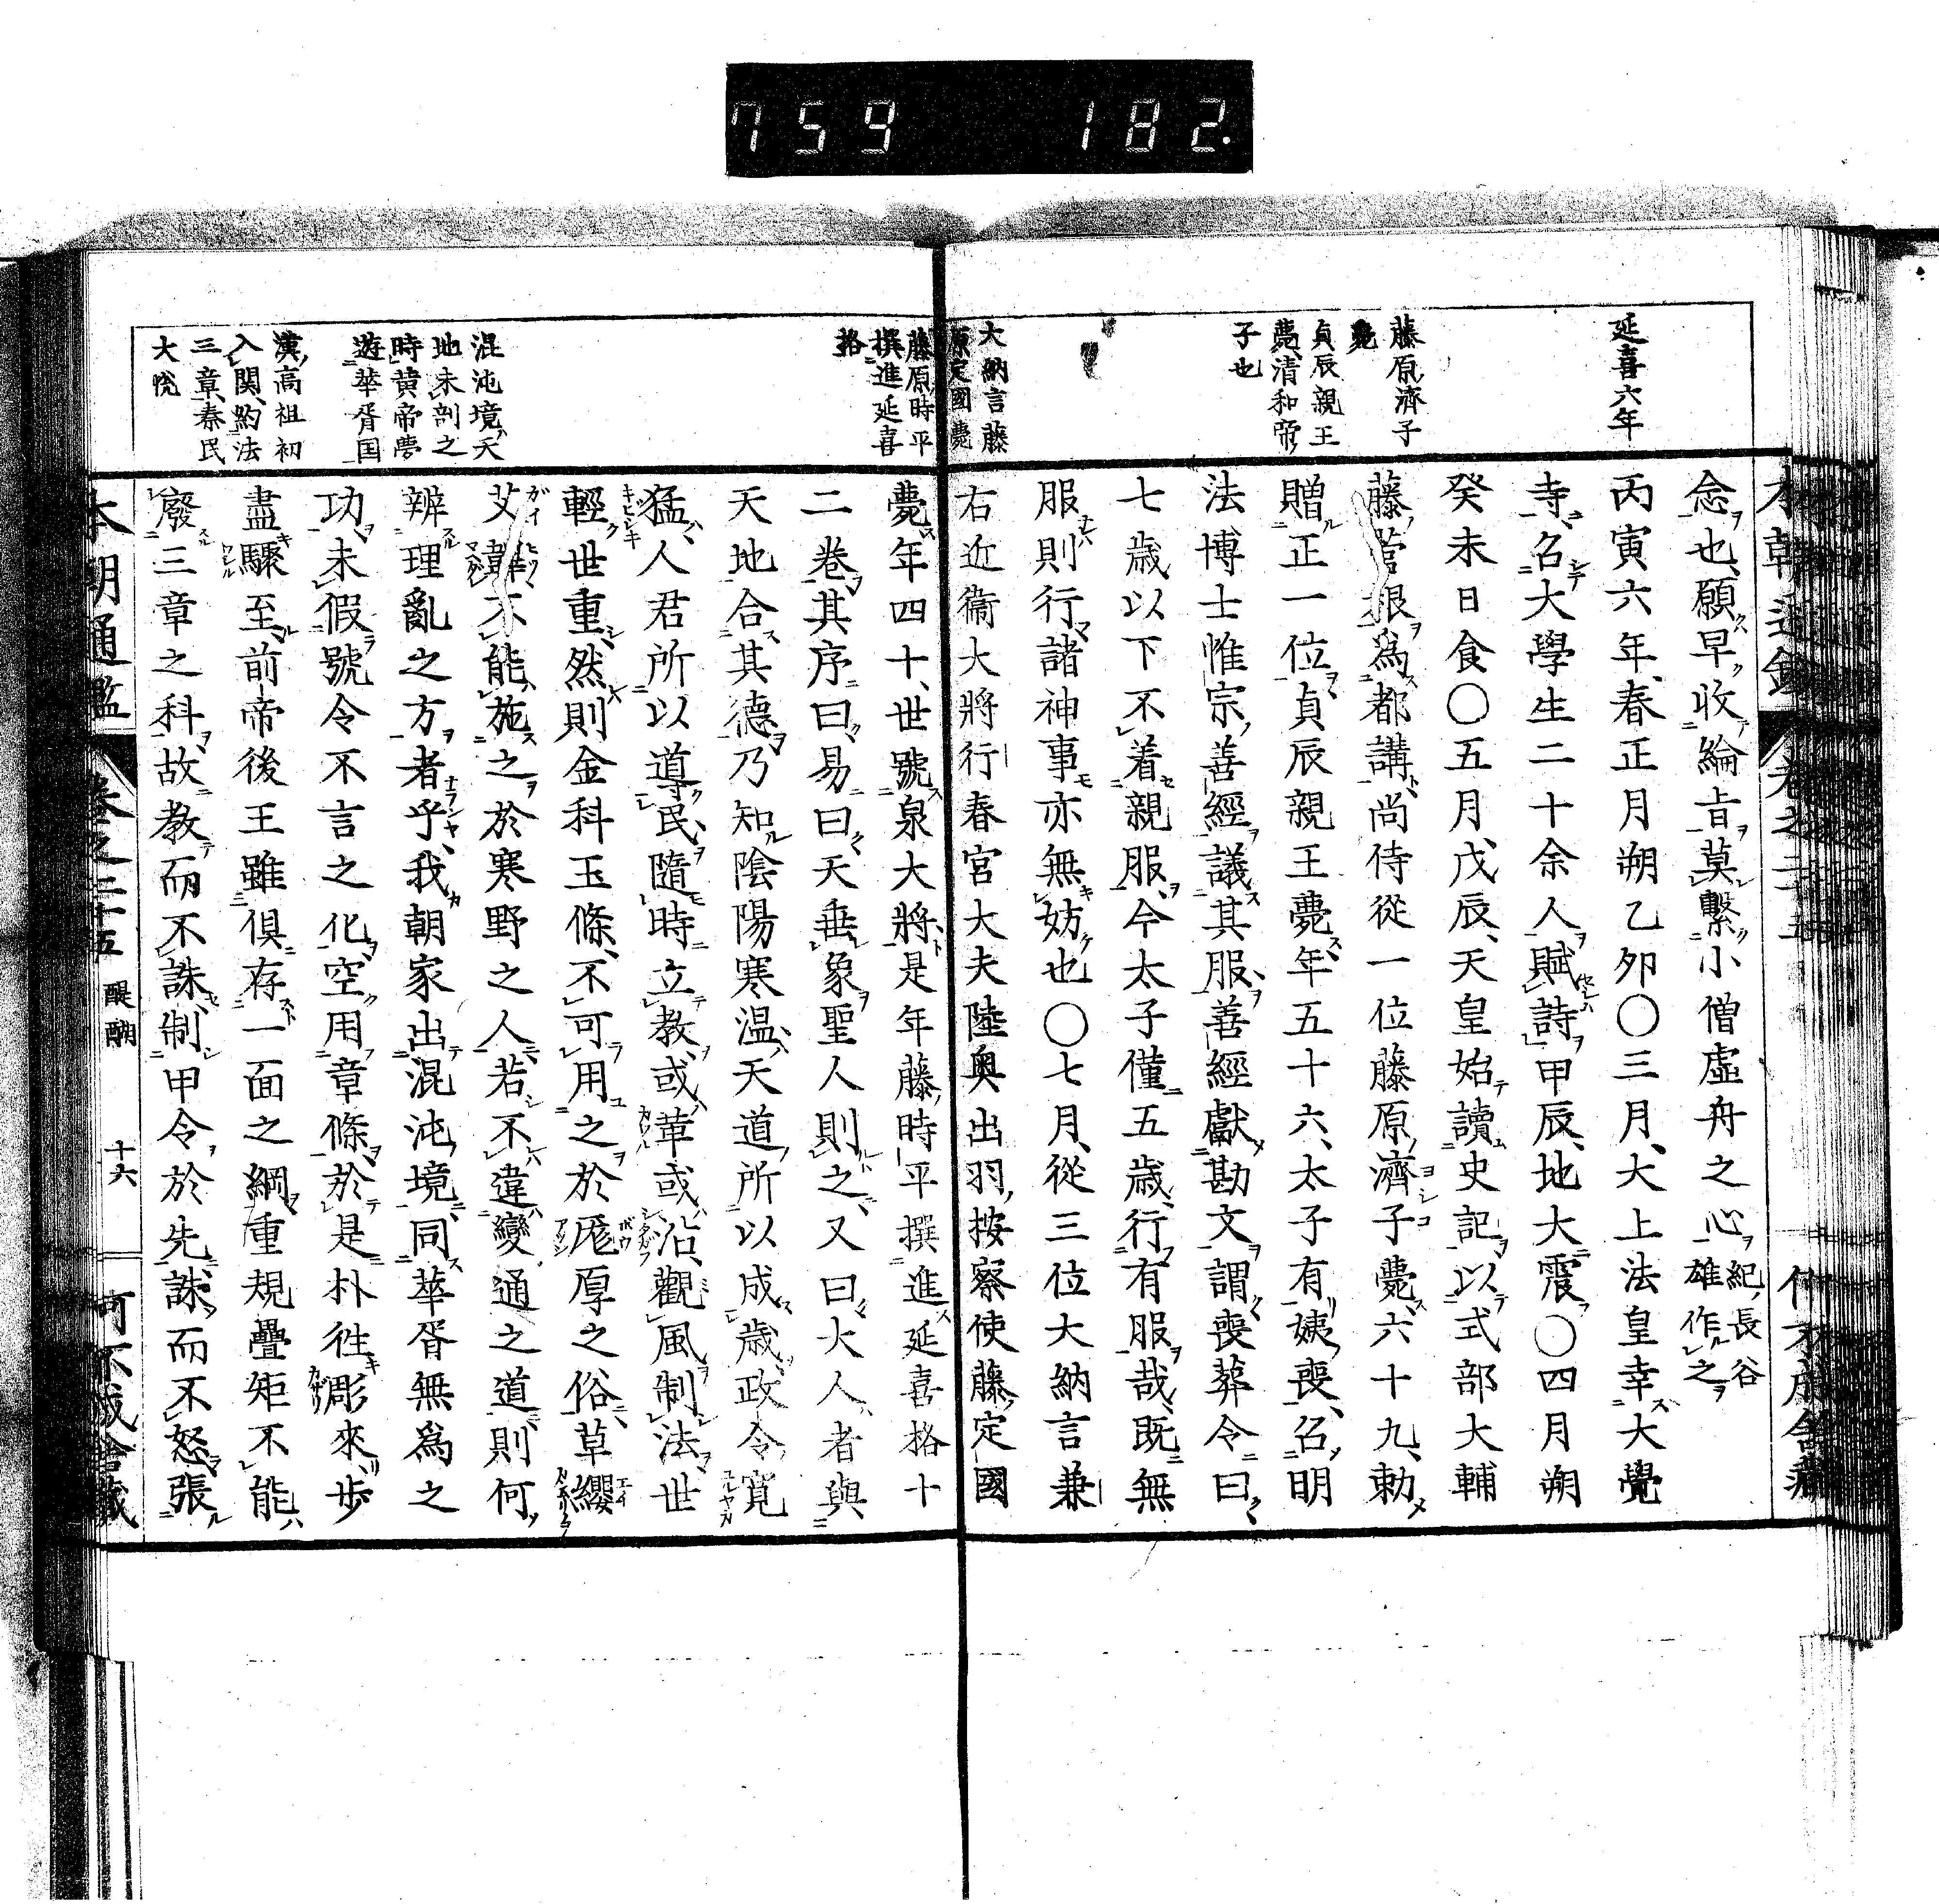 759 182.
延喜六年
藤原濟子
薨
貞辰親王
薨清和帝
子也
大納言藤
原定國薨
藤原時平
撰進延喜
格
混沌境天
地未剖之
時黄帝夢
遊華胥国
漢高祖初
入関約法
三章秦民
大悦
念也願早收綸旨莫繫小僧虚舟之心紀長谷雄作之
丙寅六年春正月朔乙夘〇三月大上法皇幸大覺
寺召大學生二十余人賦詩甲辰地大震〇四月朔
癸未日食〇五月戊辰天皇始讀史記以式部大輔
藤菅根爲都講尚侍從一位藤原濟子薨六十九勅
贈正一位貞辰親王薨年五十六太子有姨喪召明
法博士惟宗善經議其服善經獻勘文謂喪葬令曰
七歳以下不着親服今太子僅五歳行有服哉既無
服則行諸神事亦無妨也〇七月從三位大納言兼
右近衞大將行春宮大夫陸奥出羽按察使藤定國
薨年四十世號泉大將是年藤時平撰進延喜格十
二卷其序曰易曰天垂象聖人則之又曰大人者與
天地合其德乃知陰陽寒温天道所以成歳政令寛
猛人君所以導民隨時立教或革或沿觀風制法世
輕世重然則金科玉條不可用之於厖厚之俗草纓
艾韠不能施之於寒野之人若不違變通之道則何
辨理亂之方者乎我朝家出混沌境同華胥無爲之
功未假號令不言之化空用章條於是朴徃彫來步
盡驟至前帝後王雖倶存一面之綱重規疊矩不能
廢三章之科故教而不誅制甲令於先誅而不怒張
本朝通鑑 卷之二十五 醍醐 十六